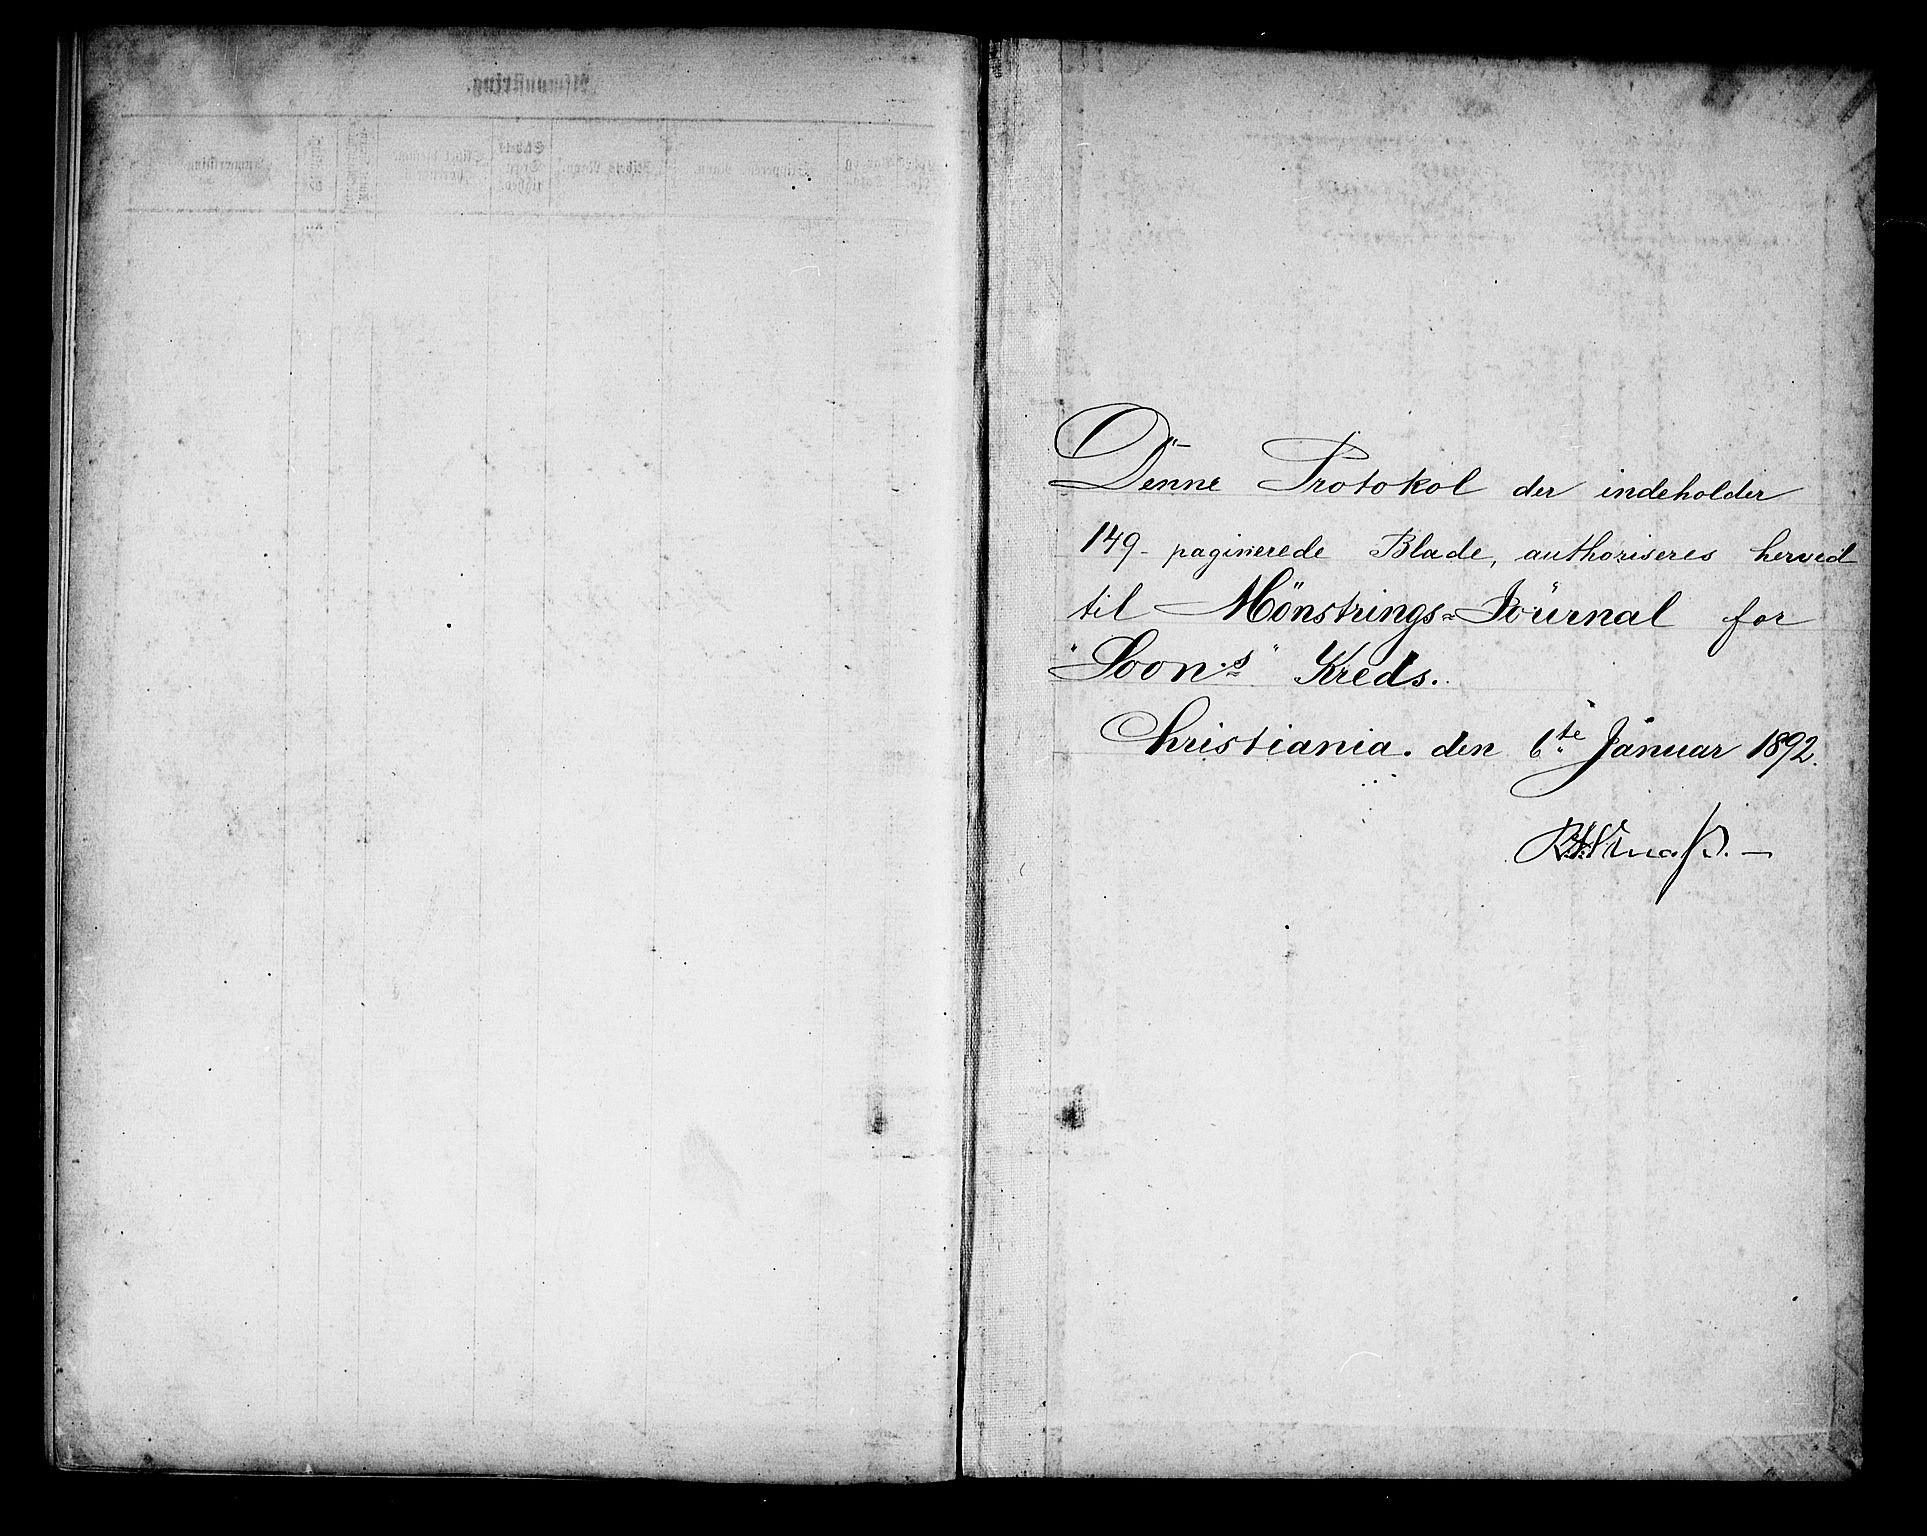 Denne Protokol der indeholder
149 - paginerede Blade, authoriseres herved
til Mönstrings-Journal for
"Soon.s" Kreds.
Christiania. den 6te Januar 1892.